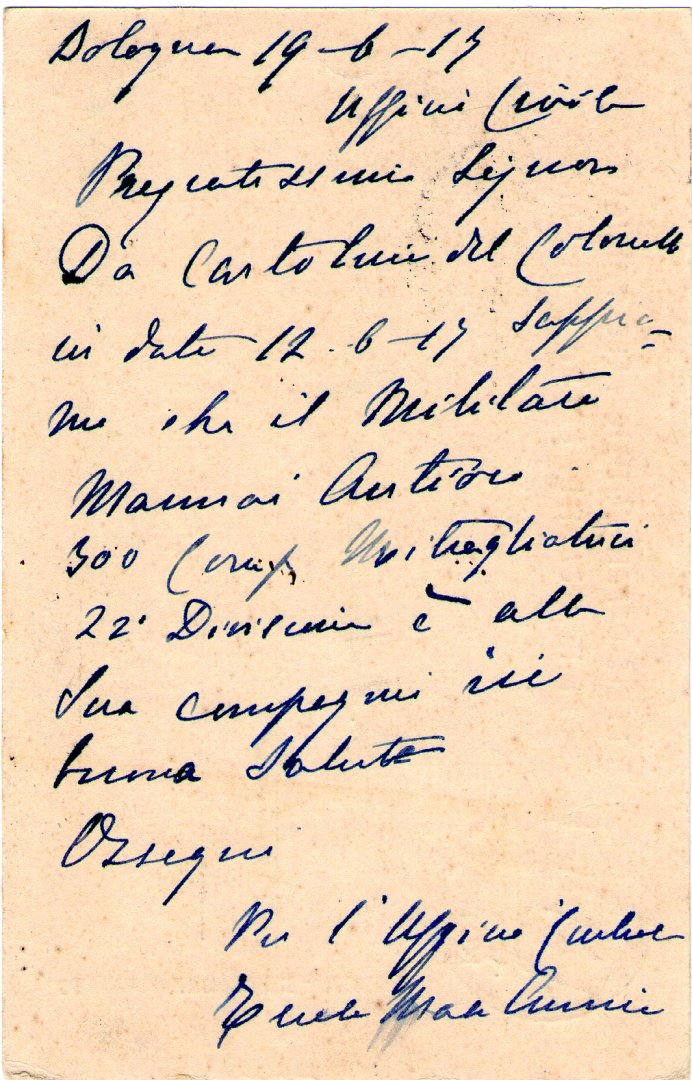 Bologna 19-6-17
Pregiatissimo Signore
Da Cartolina del Colonnello
in data 12-6-17 Sappia=
mo che il Militare
Mannai Antioco
300 Comp Mitragliatrici
22ª Divisione è alla
Sua compagnia in
buona Salute
Ossequi
Per l'Ufficio